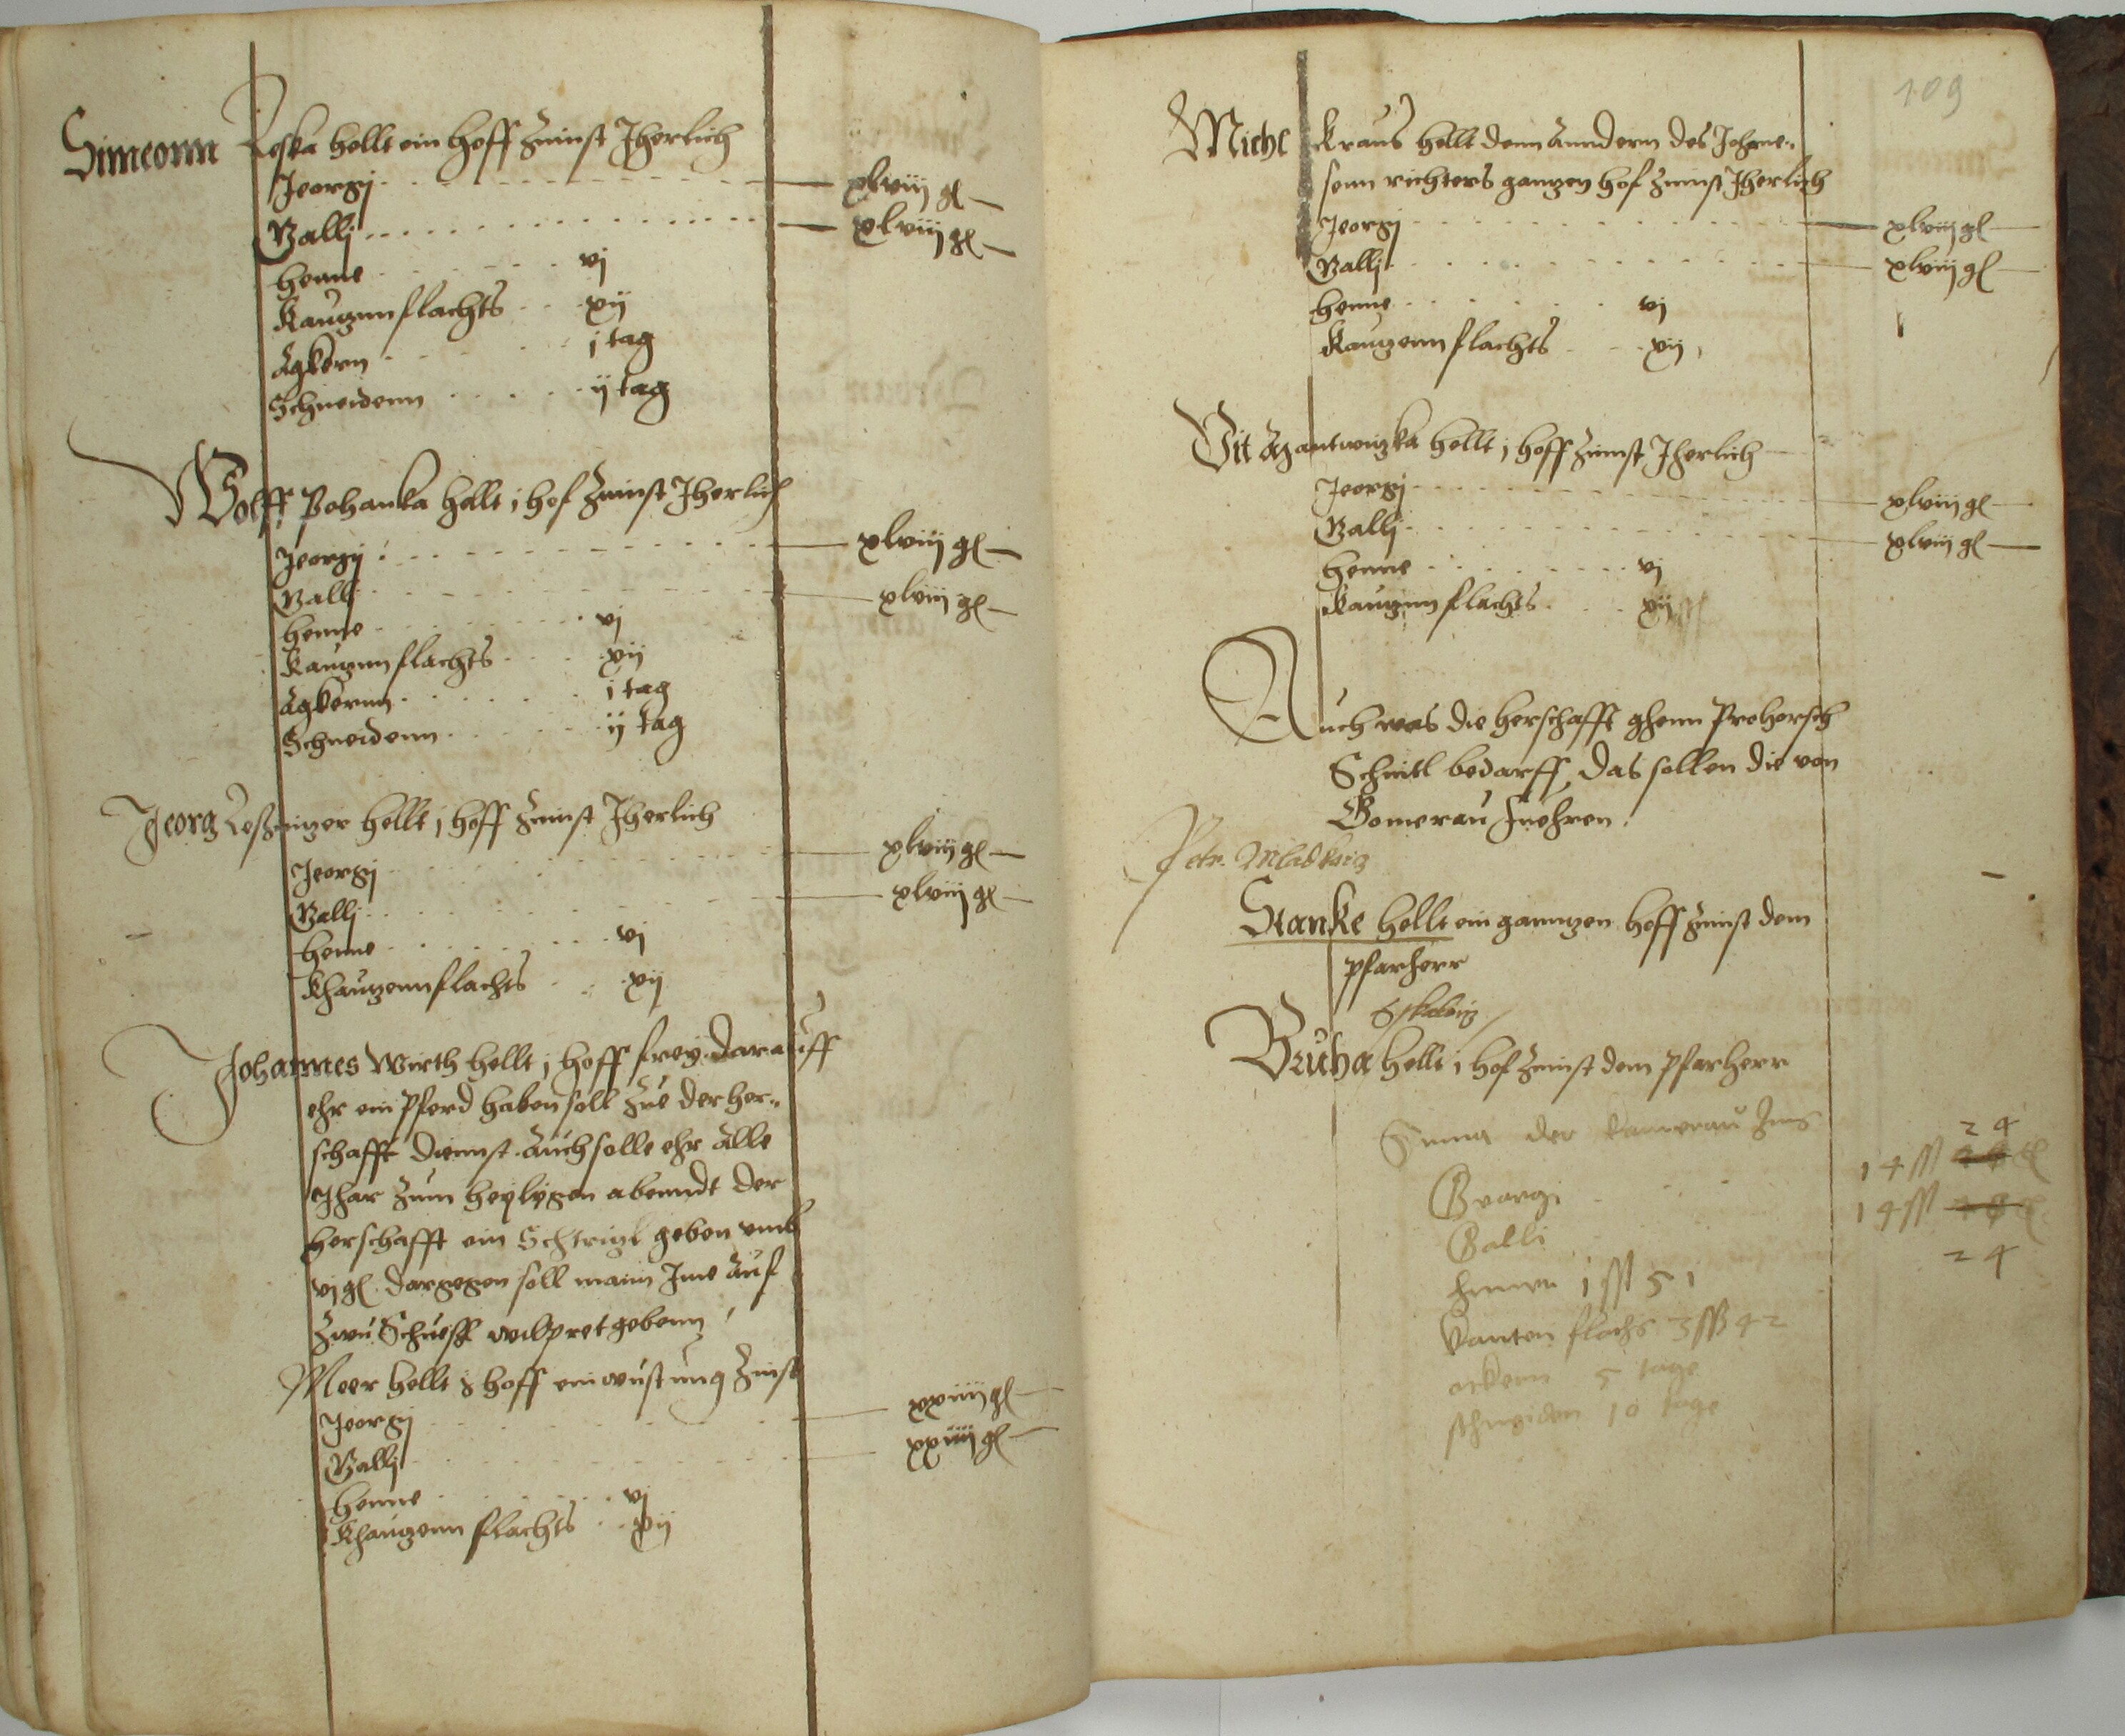 Simeonn Leska hellt ein hoff Zinnst Jherlich
Jeorgÿ xlviij gl
Gallj xlviij gl
henne vj
Kauzenn flachts xij
Agkern j tag
Schneidenn ij tag
Wolff Pohanka hellt j hof Zinnst Jherlich
Jeorgÿ xlviij gl
Gallj xlviij gl
henne vj
Kauzenn flachts xij
Agkernn j tag
Schneidenn ij tag
Jeorg hellt j hoff Zinnst Jherlich
Jeorgÿ xlviij gl
Gallj xlviij gl
henne vj
Khauzennflachts xij
Johannes Wirth hellt j hoff freÿ darauff
ehr ein Pferd haben soll Zue der her-
schafft diennst. Auch solle ehr Alle
Jhar Zum heÿlÿgen abenndt der
herschafft ein Schtrizl geben umb
vj gl. dargegen soll mann Jme Auf
Zwu Schueß wilpret gebenn
Meer hellt hoff ein wustung Zinst
Jeorgÿ xxiiij gl
Gallj xxiiij gl
henne vj
Khauzenn flachts xij
109
Michl Kraus hellt denn Anndern des
richters ganzen hof Zinnst Jherlich
Jeorgÿ xlviij gl
Gallj xlviij gl
henne vj
Kauzenn flachts xij
Vit hellt j hoff Zinnst Jherlich
Jeorgÿ xlviij gl
Gallj xlviij gl
henne vj
Kauzenn flachts xij
Auch was die herschafft ghenn Prohorsch
Schintl bedarff, das sollen die von
Gomerau fuehren.
Petr. Mladkaiz
Stanke hellt ein gannzen hoff Zinst dem
pfarherr
Skalniz
Bruha hellt j hof Zinnst dem pfarherr
Suma der Kamerau Zins
24
Georgi 14 ss
Galli 14 ss
24
hennen 1 ss 51
Kauten flachs 3 ss 42
ackern 5 tage
schneiden 10 tage